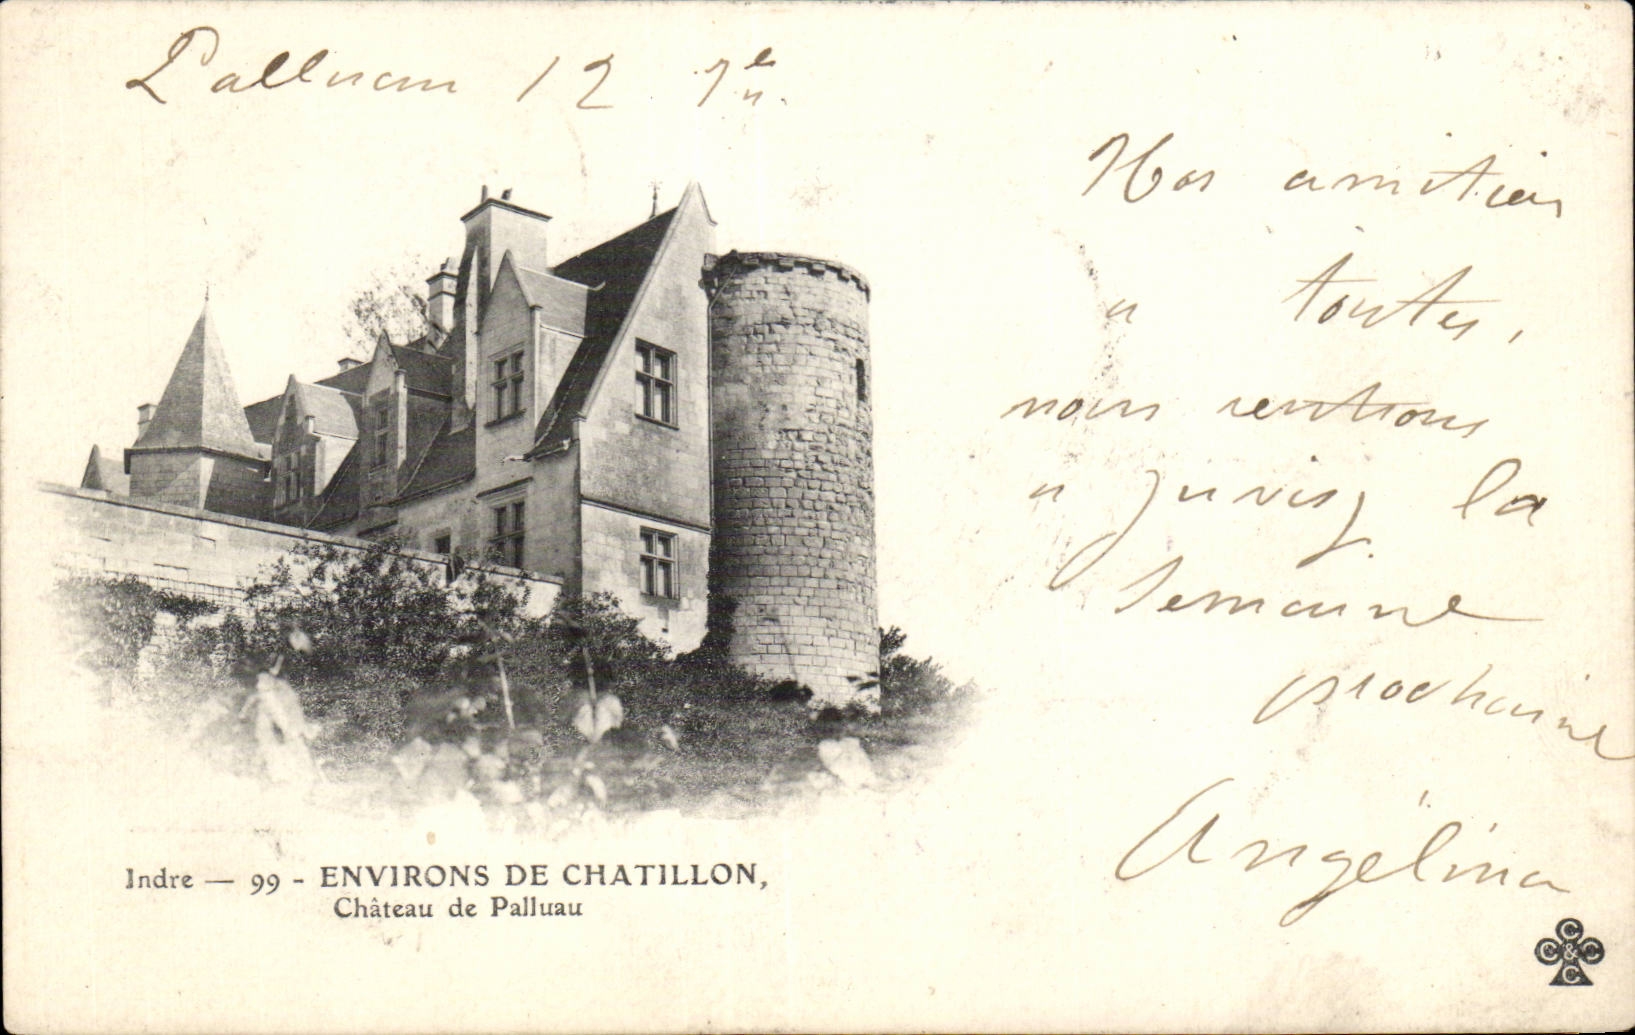 Palluau 12 7bre
Nos amitiés
a toutes,
nous rentrons
a Juvisy la
semaine
prochaine
Angélina
Indre — 99 - ENVIRONS DE CHATILLON,
Château de Palluau
C
C & C
C